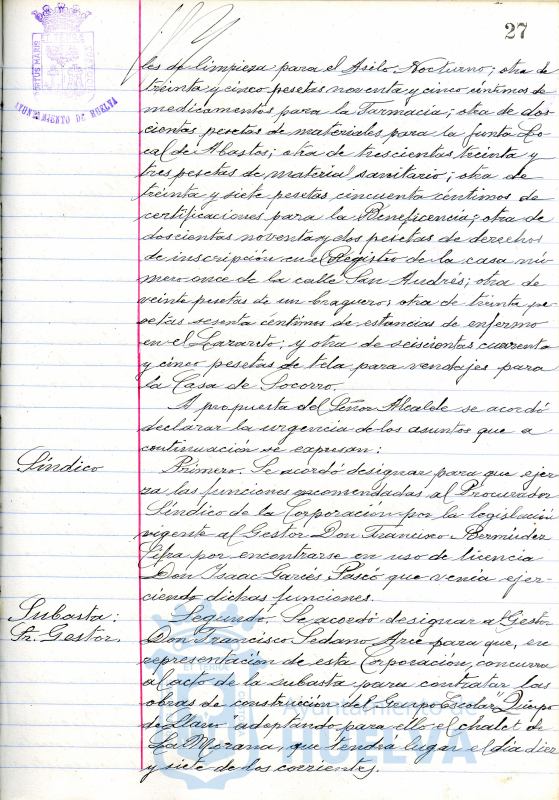 27
AYUNTAMIENTO DE HUELVA
les de limpieza para el Asilo Nocturno; otra de
treinta y cinco pesetas noventa y cinco céntimos de
medicamentos para la Farmacia; otra de dos-
cientas pesetas de materiales para la Junta Lo-
cal de Abastos; otra de trescientas treinta y
tres pesetas de material sanitario; otra de
treinta y siete pesetas cincuenta céntimos de
certificaciones para la Beneficencia; otra de
doscientas noventa y dos pesetas de derechos
de inscripción en el Registro de la casa nú-
mero once de la calle San Andrés; otra de
veinte pesetas de un braguero; otra de treinta pe-
setas sesenta céntimos de estancias de enfermo
en el Lazareto; y otra de seiscientas cuarenta
y cinco pesetas de tela para vendajes para
la Casa de Socorro.
A propuesta del Señor Alcalde se acordó
declarar la urgencia de los asuntos que a
continuación se expresan:
Síndico
Primero. Se acordó designar para que ejer-
za las funciones encomendadas al Procurador
Síndico de la Corporación por la legislación
vigente al Gestor Don Francisco Bermúdez
Cifra por encontrarse en uso de licencia
Don Isaac Garcés Pascó que venía ejer-
ciendo dichas funciones.
Subasta:
Sr. Gestor.
Segundo. Se acordó designar al Gestor
Don Francisco Sedano Arce para que, en
representación de esta Corporación, concurra
al acto de la subasta para contratar las
obras de construcción del Grupo Escolar "Queipo
de Llano" adaptando para ello el chalet de
La Morana, que tendrá lugar el día diez
y siete de los corrientes.
Ayuntamiento
HUELVA